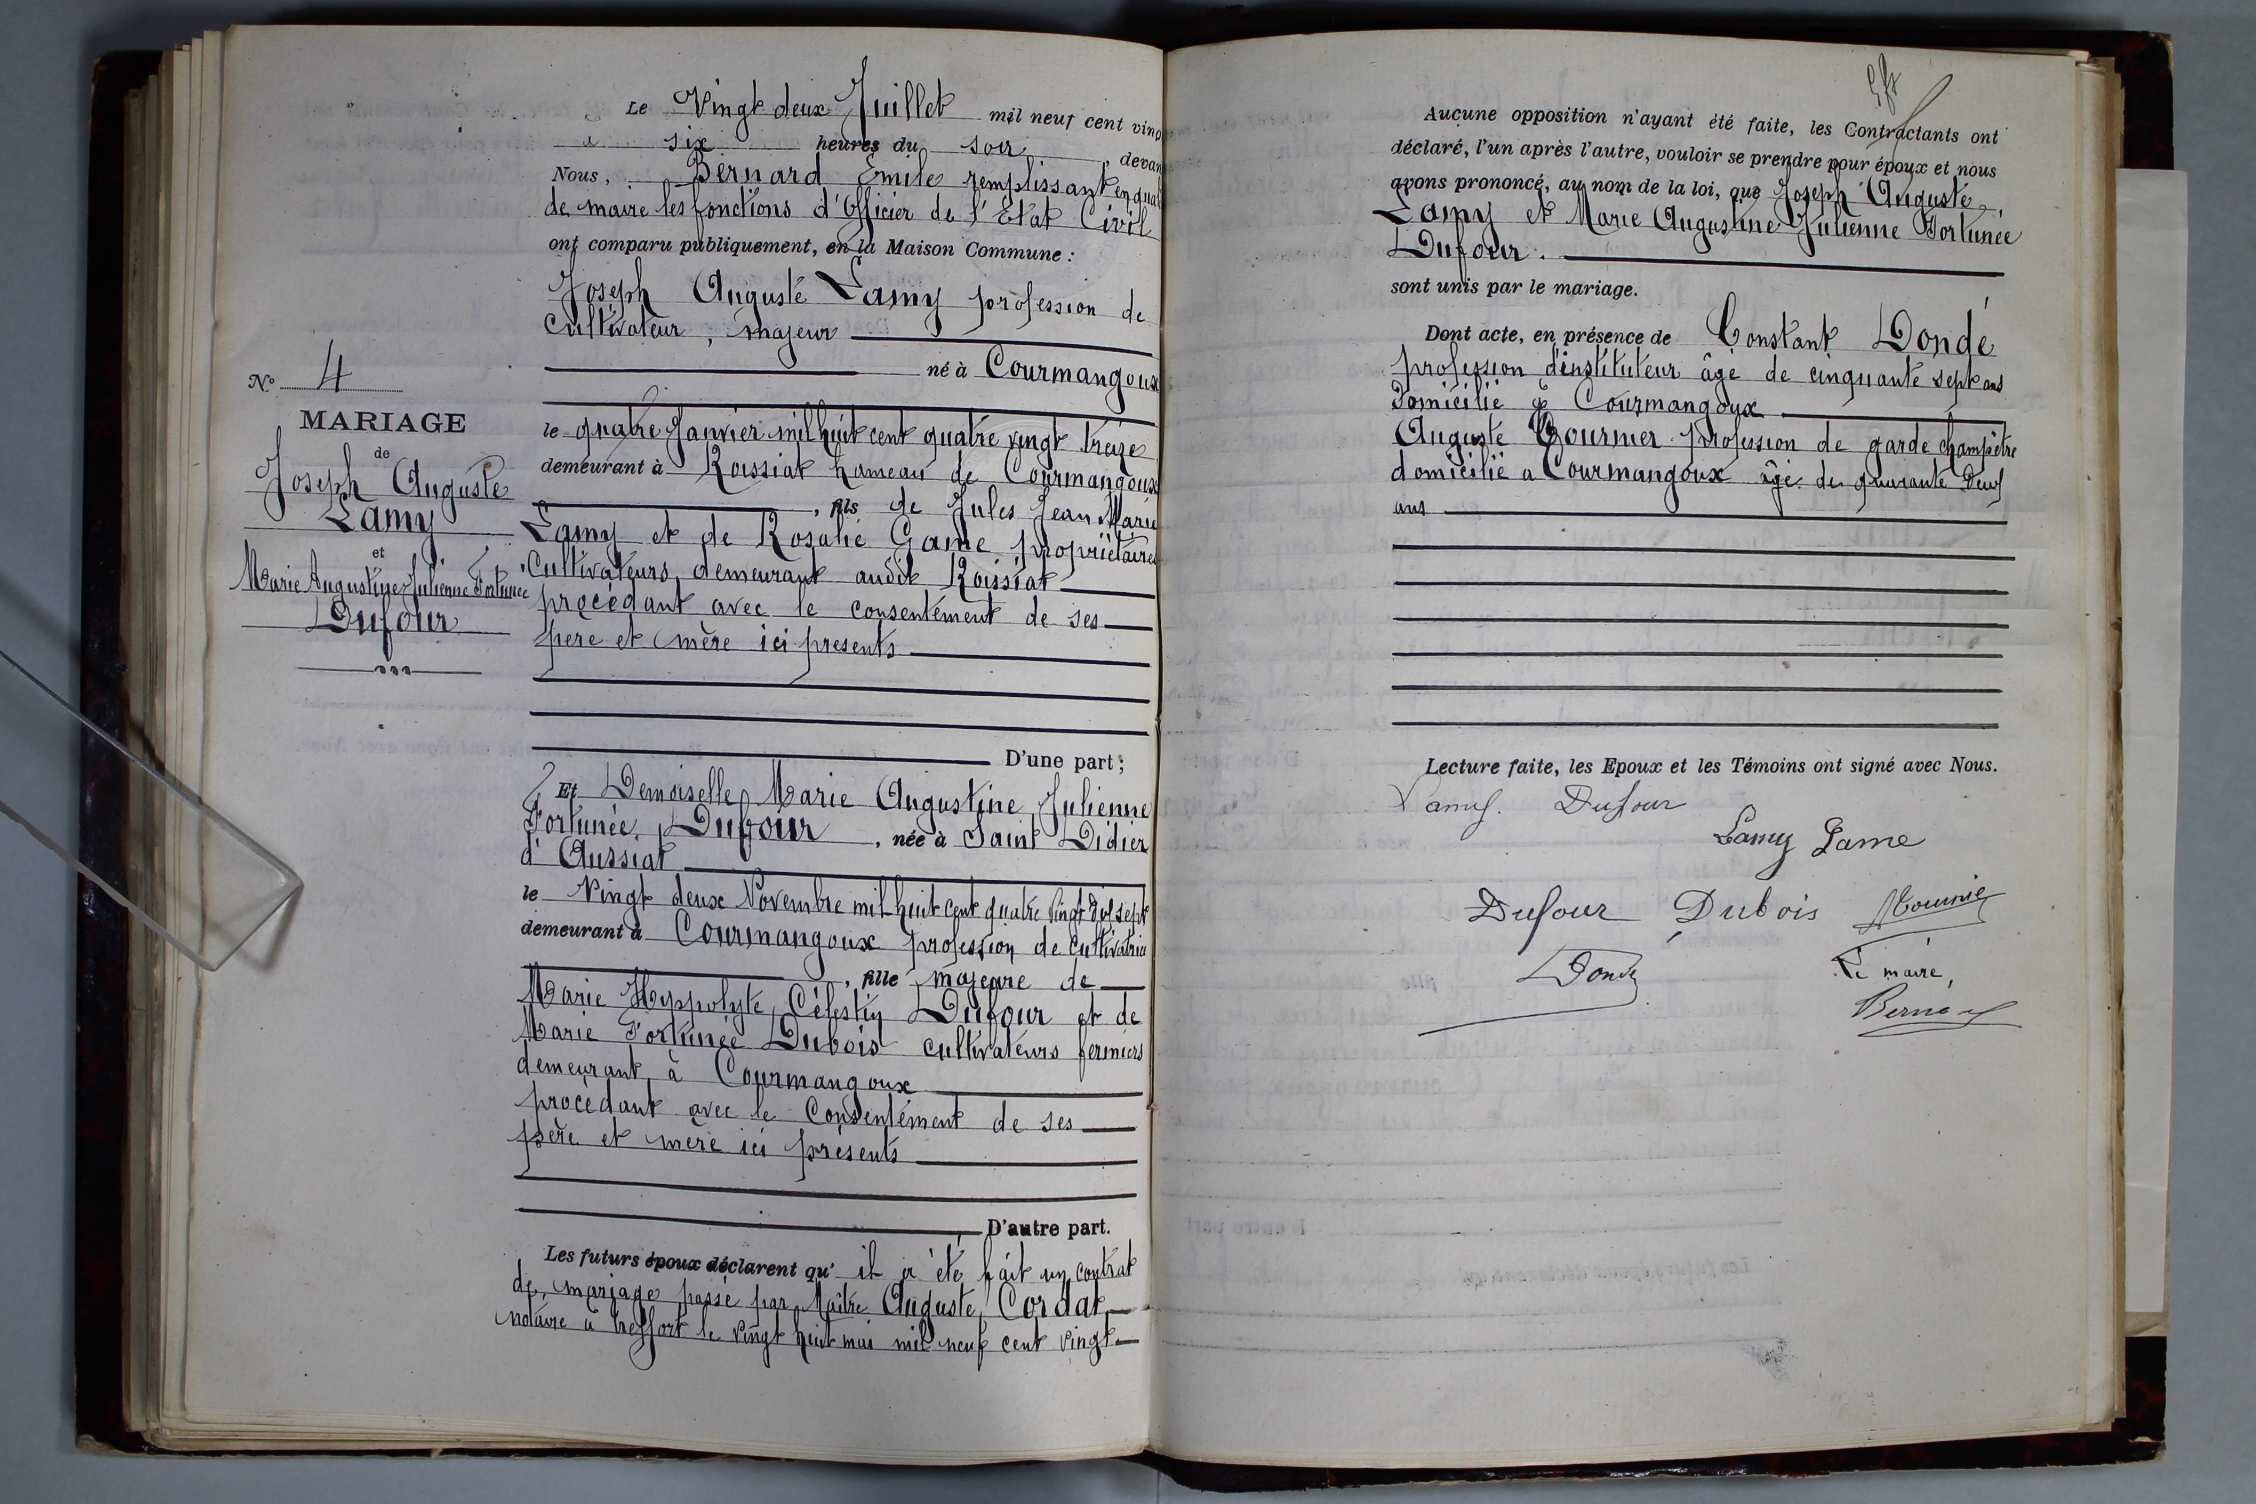 Le Vingt deux Juillet mil neuf cent vingt
a six heures du soir, devant
Nous, Bernard Emile remplissant en qual
de maire les fonctions d'Officier de l'Etat Civil
ont comparu publiquement, en la Maison Commune :
Joseph Auguste Lamy profession de
cultivateur, majeur
né à Courmangoux
le quatre Janvier mil huit cent quatre vingt treize
demeurant à Roissiat hameau de Courmangoux
, fils de Jules Jean Marie
Lamy et de Rosalie Game propriétaires
Cultivateurs, demeurant audit Roissiat
procédant avec le consentement de ses
père et mère ici présents
D'une part ;
Et Demoiselle Marie Augustine Julienne
Fortunée Dufour, née à Saint Didier
d'Aussiat
le Vingt deux Novembre mil huit cent quatre vingt dix sept
demeurant à Courmangoux profession de cultivatrice
, fille majeure de
Marie Hyppolyte Célestin Dufour et de
Marie Fortunée Dubois cultivateurs fermiers
demeurant à Courmangoux
procédant avec le Consentement de ses
père et mère ici présents
D'autre part.
Les futurs époux déclarent qu' il a été fait un contrat
de mariage passé par Maître Auguste Cordat
notaire à treffort le vingt huit mai mil neuf cent vingt
N° 4
MARIAGE
de
Joseph Auguste
Lamy
et
Marie Augustine Julienne Fortunée
Dufour
Aucune opposition n'ayant été faite, les Contractants ont
déclaré, l'un après l'autre, vouloir se prendre pour époux et nous
avons prononcé, au nom de la loi, que Joseph Auguste
Lamy et Marie Augustine Julienne Fortunée
Dufour.
sont unis par le mariage.
Dont acte, en présence de Constant Dondé
profession d'instituteur âgé de cinquante sept ans
Domicilié à Courmangoux
Auguste Tournier profession de garde champêtre
domicilié a Courmangoux âgé de quarante Deux
ans
Lecture faite, les Epoux et les Témoins ont signé avec Nous.
Lamy. Dufour
Lamy Game
Dufour Dubois Tournier
Dondé Le maire,
Bernard